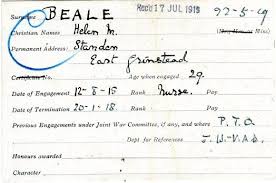 Surname BEALE Recd 17 JUL 1919 92-5-19
Christian Names Helen M. (Mr., Mrs. or Miss)
Permanent Address: Standen
East Grinstead
Certificate No. Age when engaged 29.
Date of Engagement 12-8-15 Rank Nurse. Pay
Date of Termination 20-1-18 Rank Pay
Previous Engagements under Joint War Committee, if any, and where P.T.O.
Dept for References J.W.V.A.D.
Honours awarded
Character